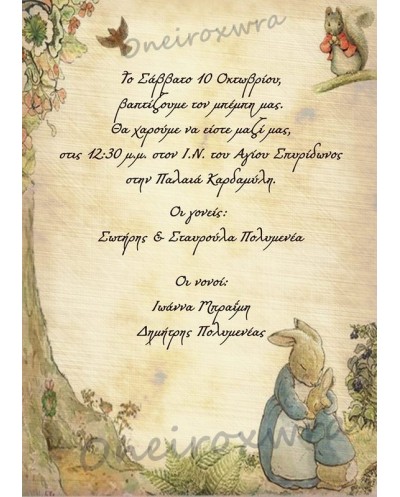 Oneiroxwra
Το Σάββατο 10 Οκτωβρίου,
βαπτίζουμε τον μπέμπη μας.
Θα χαρούμε να είστε μαζί μας,
στις 12:30 μ.μ. στον Ι.Ν. του Αγίου Σπυρίδωνος
στην Παλαιά Καρδαμύλη.
Οι γονείς:
Σωτήρης & Σταυρούλα Πολυμενέα
Οι νονοί:
Ιωάννα Μπραΐμη
Δημήτρης Πολυμενέας
Oneiroxwra